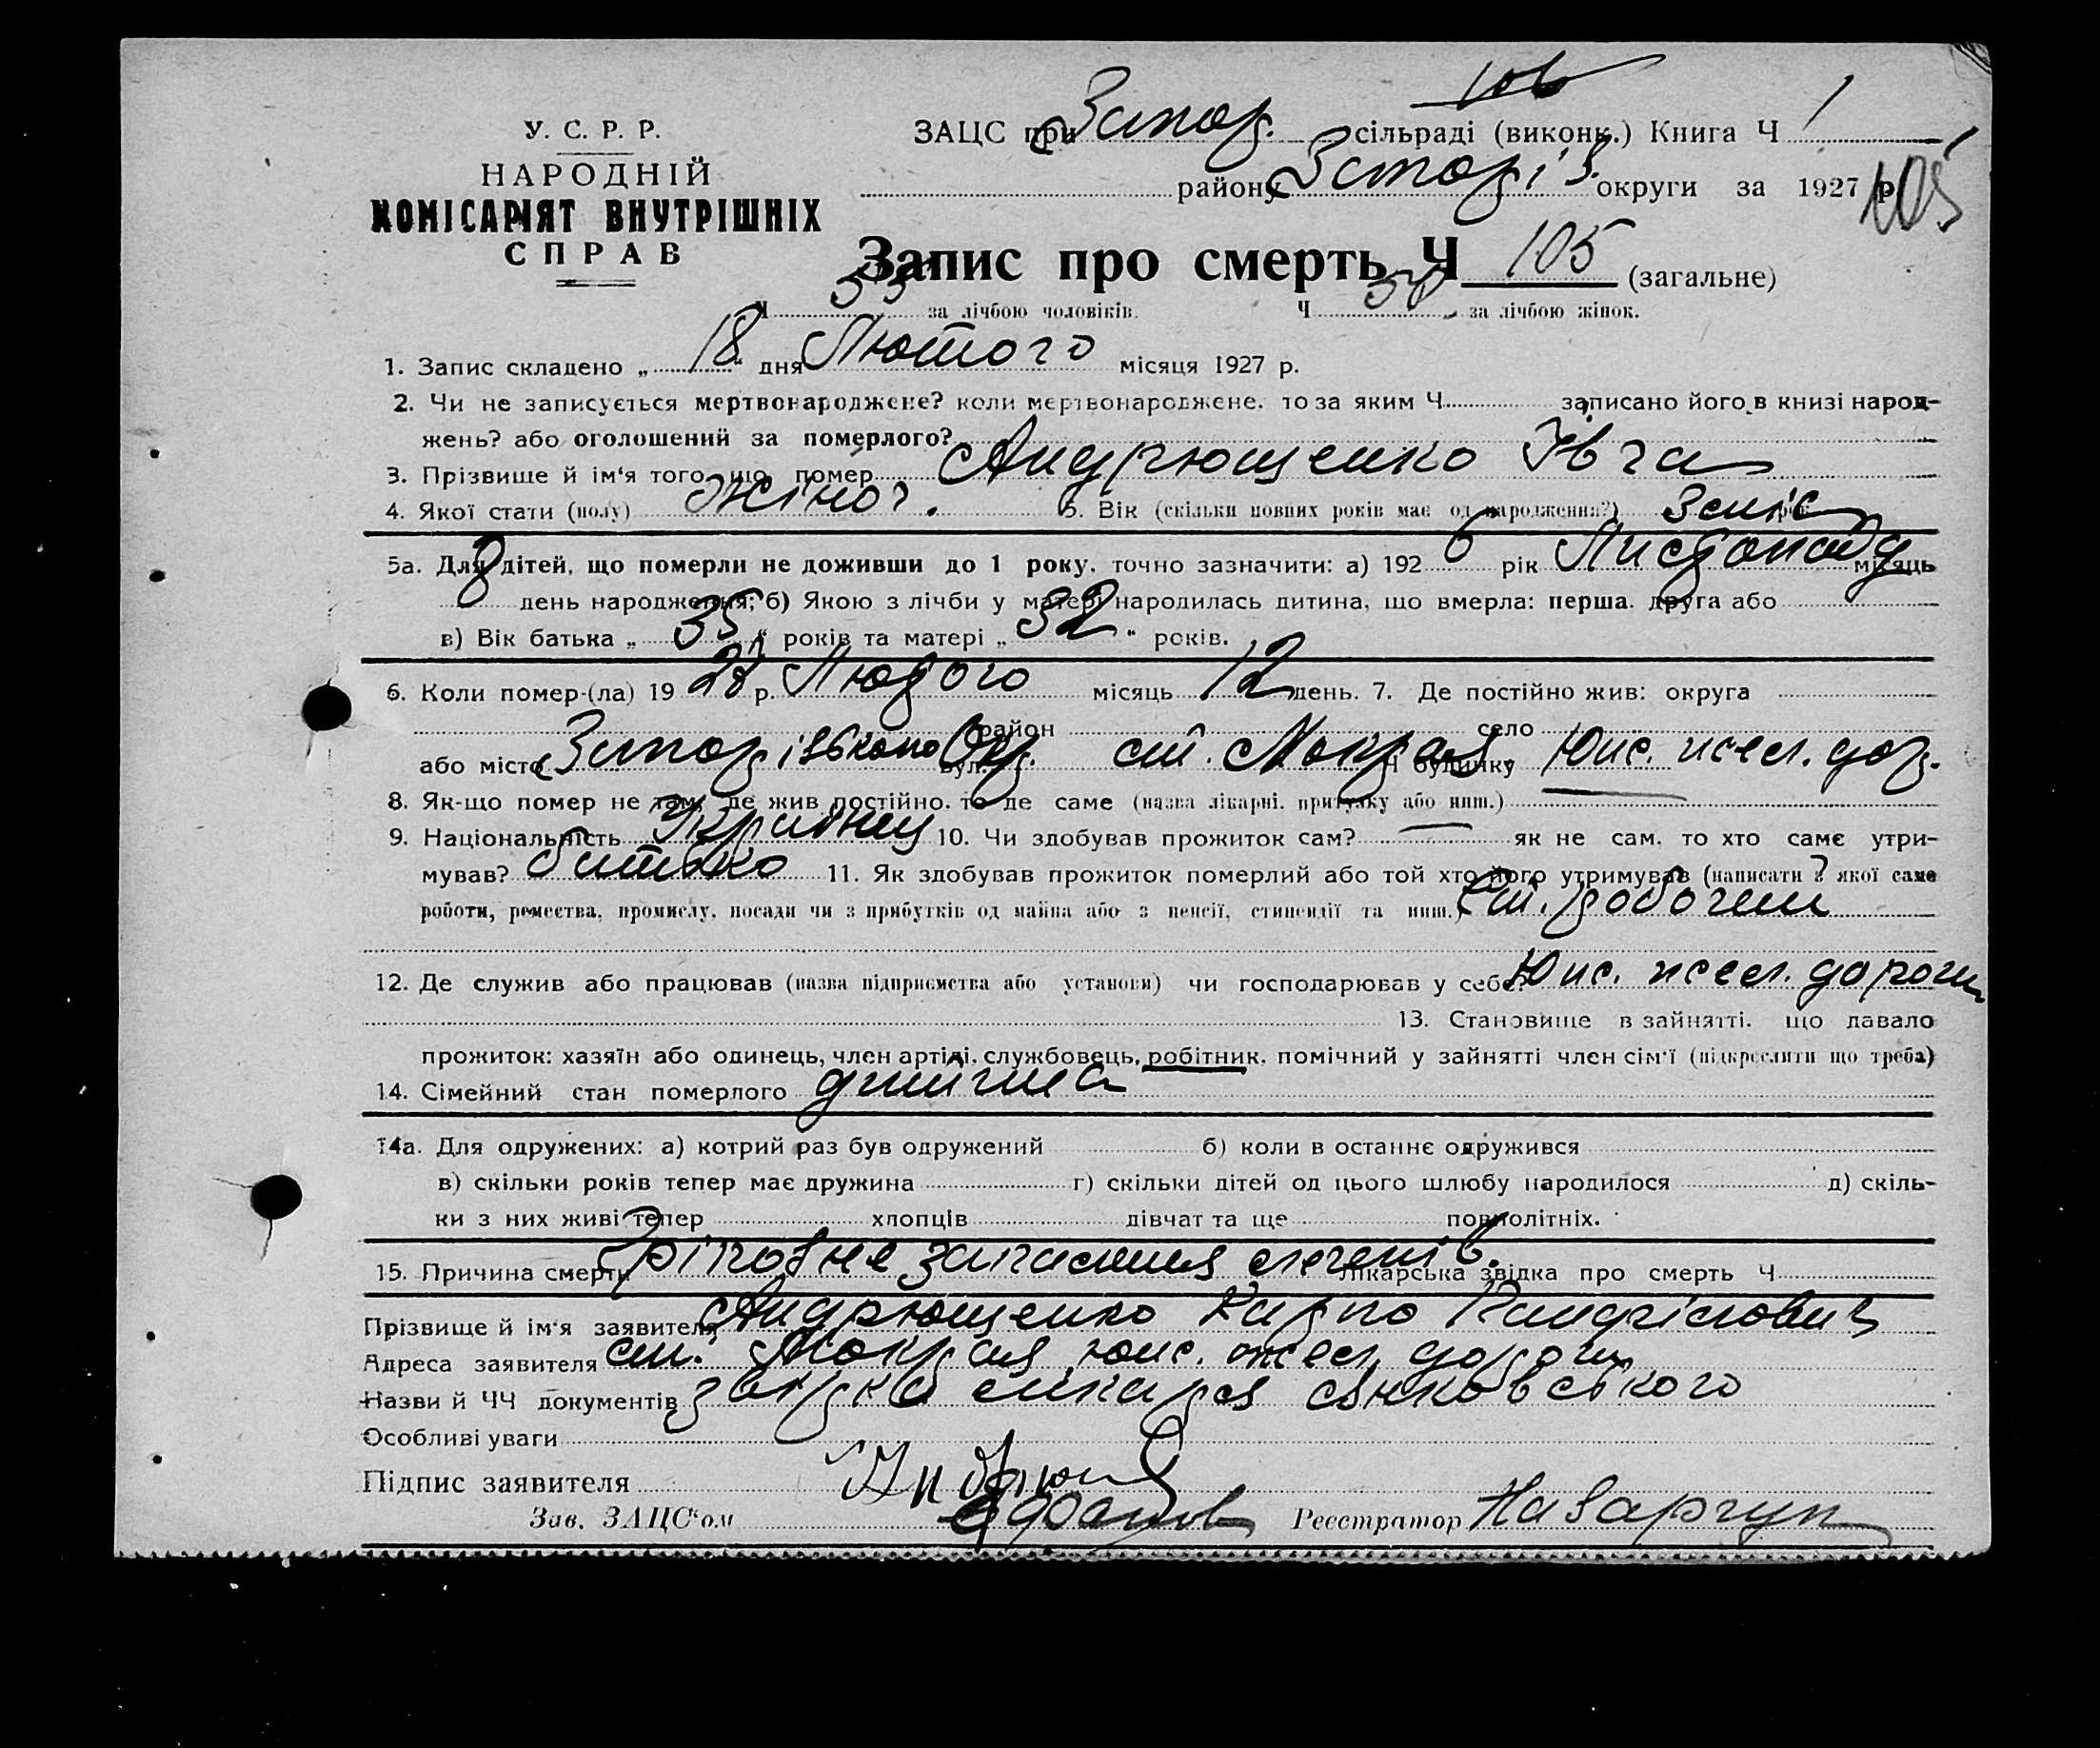 106
У. С. Р. Р.
ЗАЦС при Запор. сільраді (виконк.) Книга Ч 1
НАРОДНІЙ
району Запоріз. округи за 1927 р.
105
КОМІСАРІЯТ ВНУТРІШНІХ
СПРАВ
Запис про смерть Ч 105 (загальне)
Ч 55 за лічбою чоловіків. Ч 50 за лічбою жінок.
1. Запис складено „ 18 “ дня Лютого місяця 1927 р.
2. Чи не записується мертвонароджене? коли мертвонароджене, то за яким Ч записано його в книзі народ-
жень? або оголошений за померлого?
3. Прізвище й ім‘я того, що помер Андрющенко Ївга
4. Якої стати (полу) жіноч. 5. Вік (скільки повних років має од народження?) 3 міс рок.
5а. Для дітей, що померли не доживши до 1 року, точно зазначити: а) 192 6 рік Листопада місяць
8 день народження; б) Якою з лічби у матері народилась дитина, що вмерла: перша, друга або
в) Вік батька „ 35 “ років та матері „ 32 “ років.
6. Коли помер-(ла) 19 р. Лютого місяць 12 день. 7. Де постійно жив: округа
район село
або місто Запорізького Окр. вул. ст. Мокрая Ч будинку Юж. жел. дор.
8. Як-що помер не там, де жив постійно, то де саме (назва лікарні, притулку або инш.)
9. Національність Українец 10. Чи здобував прожиток сам? — як не сам, то хто саме утри-
мував? батько 11. Як здобував прожиток померлий або той хто його утримував (написати з якої саме
роботи, ремества, промислу, посади чи з прибутків од майна або з пенсії, стипендії та инш.) ст. робочий
12. Де служив або працював (назва підприємства або установи) чи господарював у себе? Юж. жел. дороги
13. Становище в зайнятті, що давало
прожиток: хазяїн або одинець, член артілі, службовець, робітник, помічний у зайнятті член сім‘ї (підкреслити що треба)
14. Сімейний стан померлого дитина
14а. Для одружених: а) котрий раз був одружений б) коли в останнє одружився
в) скільки років тепер має дружина г) скільки дітей од цього шлюбу народилося д) скіль-
ки з них живі тепер хлопців дівчат та ще повнолітніх.
15. Причина смерти запалення легенів. Лікарська звідка про смерть Ч
Прізвище й ім‘я заявителя Андрющенко Карпо
Адреса заявителя ст. Мокрая юж. жел. дороги
Назви й ЧЧ документів лікаря
Особливі уваги
Підпис заявителя
Зав. ЗАЦС‘ом Реєстратор Назарчук